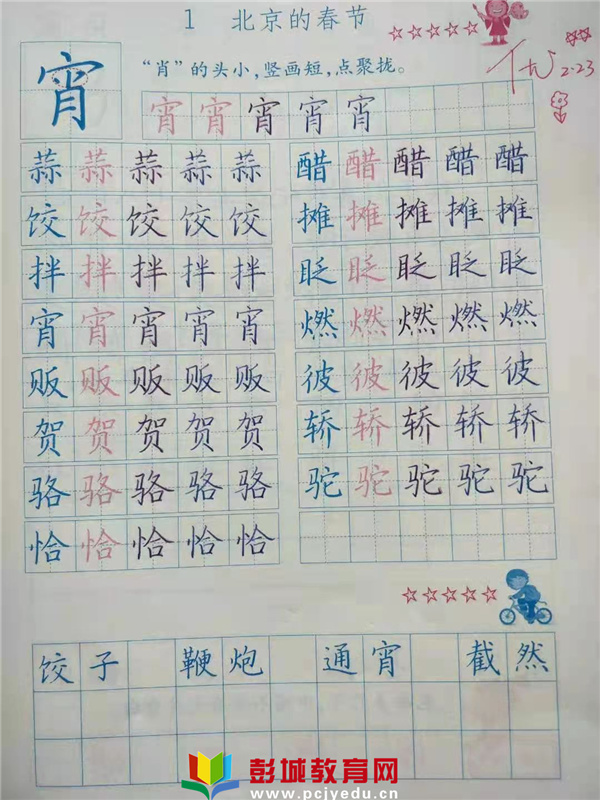 1 北京的春节
宵 “肖”的头小，竖画短，点聚拢。
2.23
宵 宵 宵 宵 宵
蒜 蒜 蒜 蒜 蒜 醋 醋 醋 醋 醋
饺 饺 饺 饺 饺 摊 摊 摊 摊 摊
拌 拌 拌 拌 拌 眨 眨 眨 眨 眨
宵 宵 宵 宵 宵 燃 燃 燃 燃 燃
贩 贩 贩 贩 贩 彼 彼 彼 彼 彼
贺 贺 贺 贺 贺 轿 轿 轿 轿 轿
骆 骆 骆 骆 骆 驼 驼 驼 驼 驼
恰 恰 恰 恰 恰
饺子 鞭炮 通宵 截然
彭城教育网
www.pcjyedu.cn